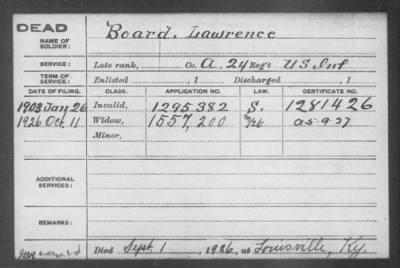 DEAD
NAME OF SOLDIER: Board, Lawrence
SERVICE: Late rank, Co. A. 24 Reg't U S Inf
TERM OF SERVICE: Enlisted , 1 Discharged , 1
DATE OF FILING. CLASS. APPLICATION NO. LAW. CERTIFICATE NO.
1903 Jany 26 Invalid, 1295382 S. 1281426
1926 Oct. 11 Widow, 1557,200
Minor,
ADDITIONAL SERVICES:
REMARKS:
Died Sept. 1, 1926, at Louisville, Ky.